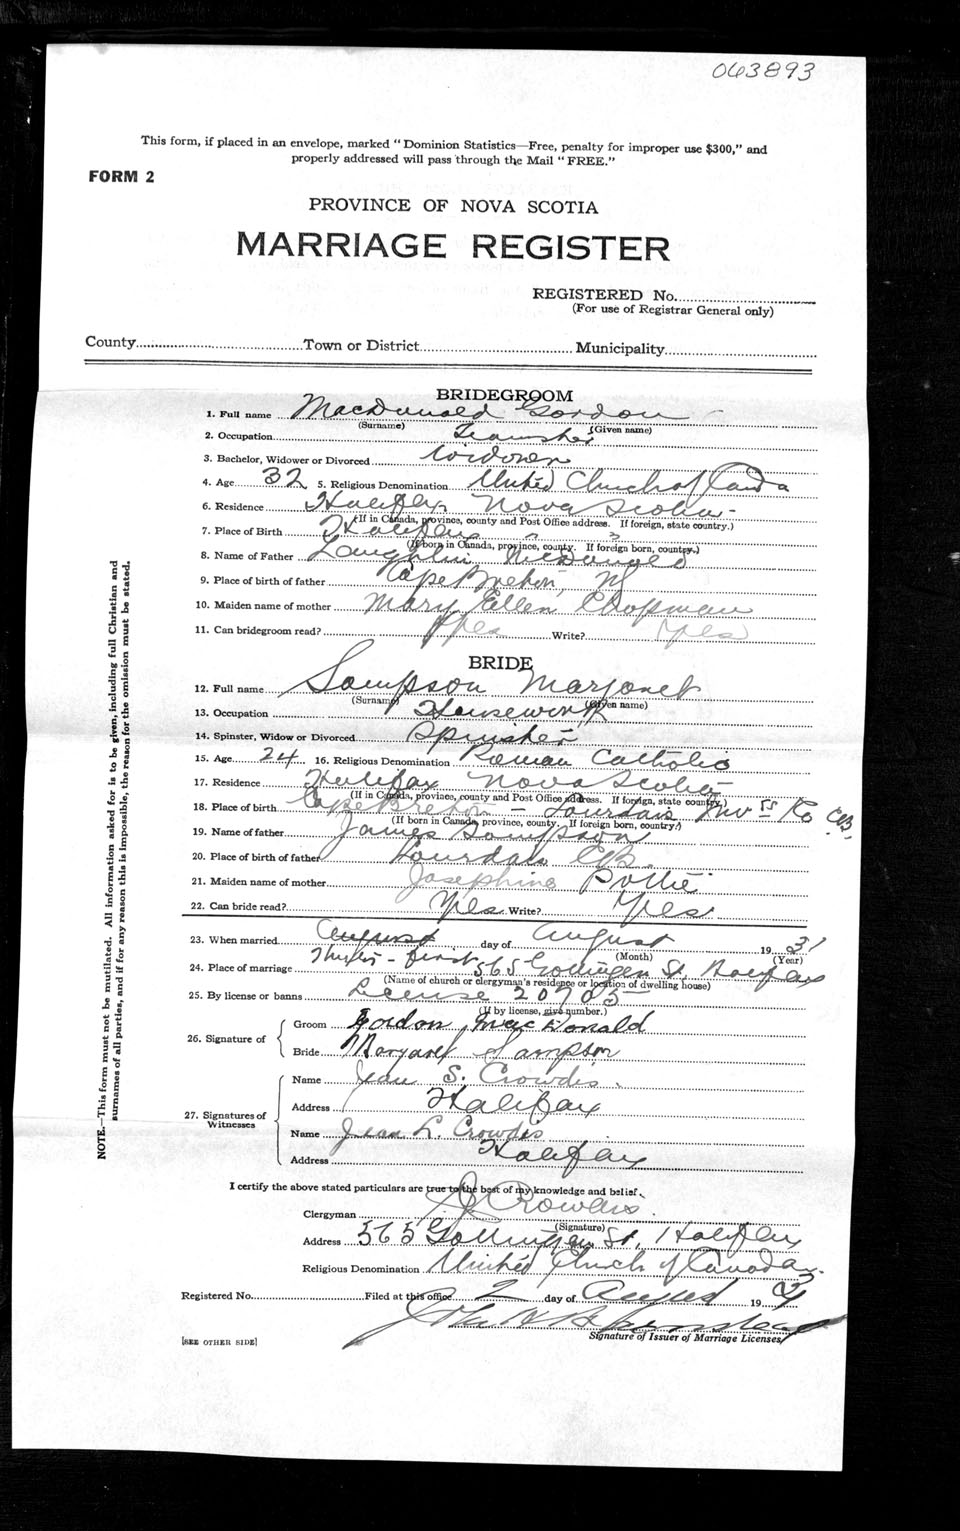 063893
This form, if placed in an envelope, marked "Dominion Statistics—Free, penalty for improper use $300," and
properly addressed will pass through the Mail "FREE."
FORM 2
PROVINCE OF NOVA SCOTIA
MARRIAGE REGISTER
REGISTERED No.
(For use of Registrar General only)
County Town or District Municipality
BRIDEGROOM
1. Full name MacDonald Gordon
(Surname) (Given name)
2. Occupation Teamster
3. Bachelor, Widower or Divorced Widower
4. Age 32 5. Religious Denomination United Church of Canda
6. Residence Halifax Nova Scotia
(If in Canada, province, county and Post Office address. If foreign, state country.)
7. Place of Birth Halifax " "
(If born in Canada, province, county. If foreign born, country.)
8. Name of Father Laughlin McDonald
9. Place of birth of father Cape Breton, NS
10. Maiden name of mother Mary Ellen Chopman
11. Can bridegroom read? yes Write? yes
BRIDE
12. Full name Sampson Margaret
(Surname) (Given name)
13. Occupation Housework
14. Spinster, Widow or Divorced Spinster
15. Age 24 16. Religious Denomination Roman Catholic
17. Residence Halifax Nova Scotia
(If in Canada, province, county and Post Office address. If foreign, state country.)
18. Place of birth Cape Breton - Lourdais Invss Co CB,
(If born in Canada, province, county. If foreign born, country.)
19. Name of father James Sampson
20. Place of birth of father Lourdais CB.
21. Maiden name of mother Josephine Pottie
22. Can bride read? Yes Write? Yes
23. When married August day of August 1931
Thirty-first (Month) (Year)
24. Place of marriage 565 Gottingen St. Halifax
(Name of church or clergyman's residence or location of dwelling house)
25. By license or banns License 20705
(If by license, give number.)
26. Signature of
Groom Gordon MacDonald
Bride Margaret Sampson
27. Signatures of Witnesses
Name Jean S. Crowdis.
Address Halifax
Name Jean L. Crowdis
Address Halifax
I certify the above stated particulars are true to the best of my knowledge and belief.
Clergyman Crowdis.
(Signature)
Address 565 Gottingen St, Halifax
Religious Denomination United Church of Canada.
Registered No. Filed at this office 2 day of August 193
Signature of Issuer of Marriage Licenses
[SEE OTHER SIDE]
NOTE.—This form must not be mutilated. All information asked for is to be given, including full Christian and
surnames of all parties, and if for any reason this is impossible, the reason for the omission must be stated.